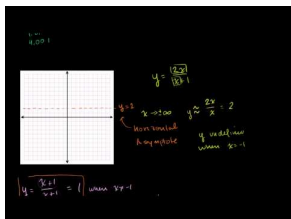 y = 2x / x+1
y=2
x → ±∞ y ≈ 2x/x = 2
horizontal
Asymptote
y undefined
when x=-1
y = x+1 / x+1 = 1 when x≠-1